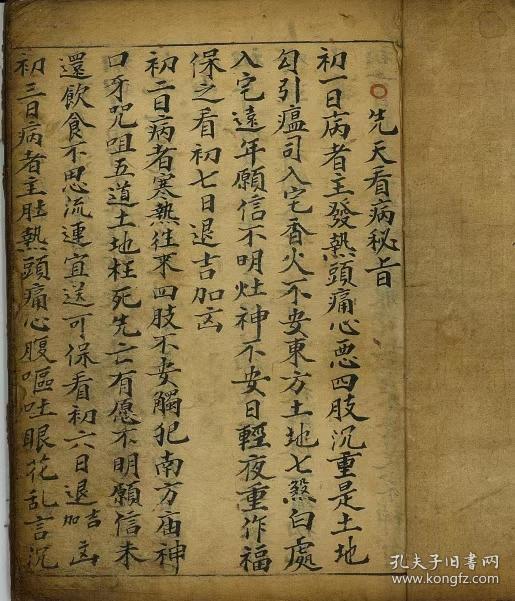 先天看病秘旨
初一日病者主發熱頭痛心悪四肢沉重是土地
勾引瘟司入宅香火不安東方土地七煞白處
入宅遠年願信不明灶神不安日輕夜重作福
保之看初七日退吉加㐫
初二日病者寒熱往來四肢不安觸犯南方庙神
口牙咒咀五道土地枉死先亡有愿不明願信未
還飲食不思流連宜送可保看初六日退吉加㐫
初三日病者主肚熱頭痛心腹嘔吐眼花乱言沉
孔夫子旧書网
www.kongfz.com